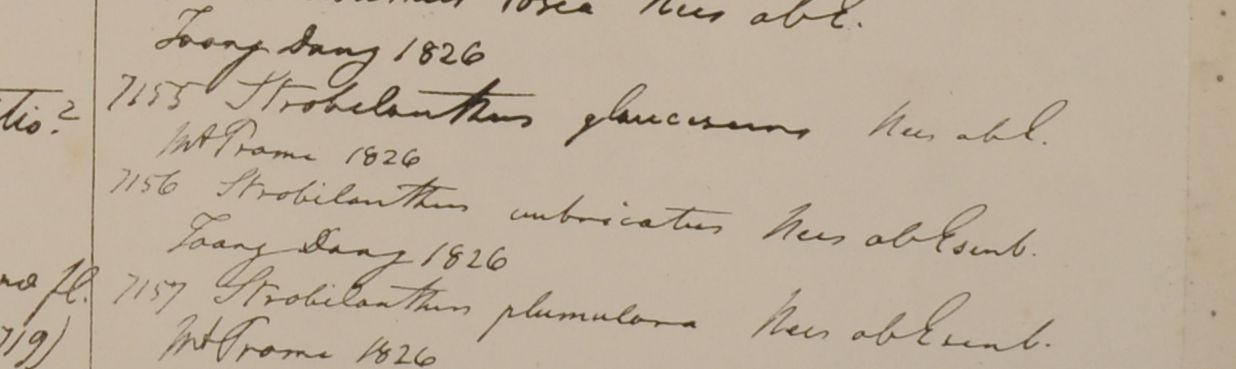 rosea Nees ab E.
Toong Dang 1826
tio?
7155 Strobilanthus glaucescens Nees ab E.
Mt Prome 1826
7156 Strobilanthus imbricatus Nees ab Esenb.
Toang Dang 1826
fl. 7157 Strobilanthus plumulosa Nees ab Esenb.
719)
Mt Prome 1826